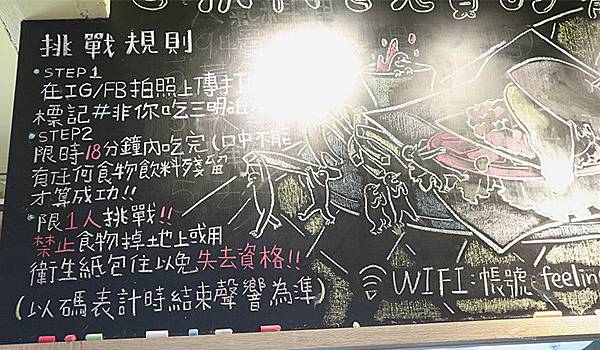 挑戰規則
STEP1
在IG/FB拍照上傳打
標記#非你吃三明治
STEP2
限時18分鐘內吃完(口中不能
有任何食物飲料殘留
才算成功!!
限1人挑戰!!
禁止食物掉土地上或用
衛生紙包住以免失去資格!!
(以碼表計時結束聲響為準)
WIFI:帳號:feelin